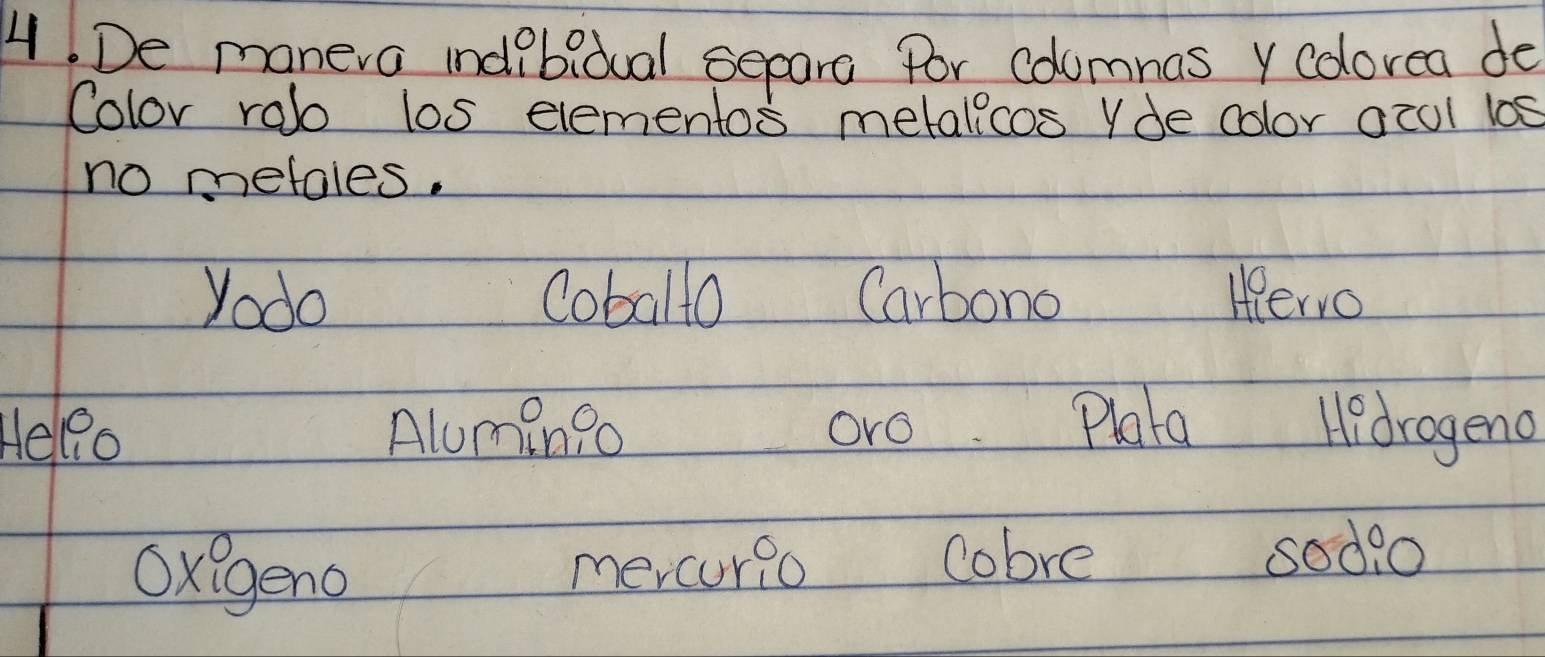 4. De manera indibidual separa Por columnas y colorea de
Color rojo los elementos metalicos y de color azul los
no metales.
Yodo Cobalto Carbono Hierro
Helio Aluminio oro Plata Hidrogeno
Oxigeno mercurio Cobre sodio